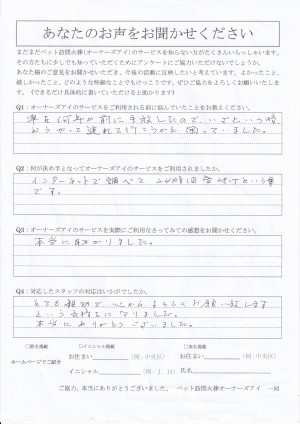 あなたのお声をお聞かせください
まだまだペット訪問火葬(オーナーズアイ)のサービスを知らない方がたくさんいらっしゃいます。
その方たちに少しでも知っていただくためにアンケートにご協力いただけないでしょうか。
あなた様のご意見をお聞かせいただき、今後の活動に反映したいと考えています。よかったこと、
嬉しかったこと、どのような些細なことでもけっこうです。ぜひご協力をよろしくお願いいたします。
(できるだけ具体的に書いていただけると助かります)
Q1：オーナーズアイのサービスをご利用される前に悩んでいたことをお教えください。
車を何年か前に手放したので、いざという時
どうやって連れて行こうかと困っていました。
Q2：何が決め手となってオーナーズアイのサービスをご利用されましたか。
インターネットで調べて 24時間受付という事
です。
Q3：オーナーズアイのサービスを実際にご利用なさってみての感想をお聞かせください。
本当に助かりました。
Q4：対応したスタッフの対応はいかがでしたか。
とても親切で 心からよろしくお願い致します
という気持ちになりました。
本当にありがとうございました。
□匿名掲載 □イニシャル掲載 □実名掲載
ホームページでご紹介
お住まい （例：中央区） お住まい （例：中央区）
イニシャル （例：J．H） 氏名
ご協力、本当にありがとうございました。 ペット訪問火葬オーナーズアイ 一同